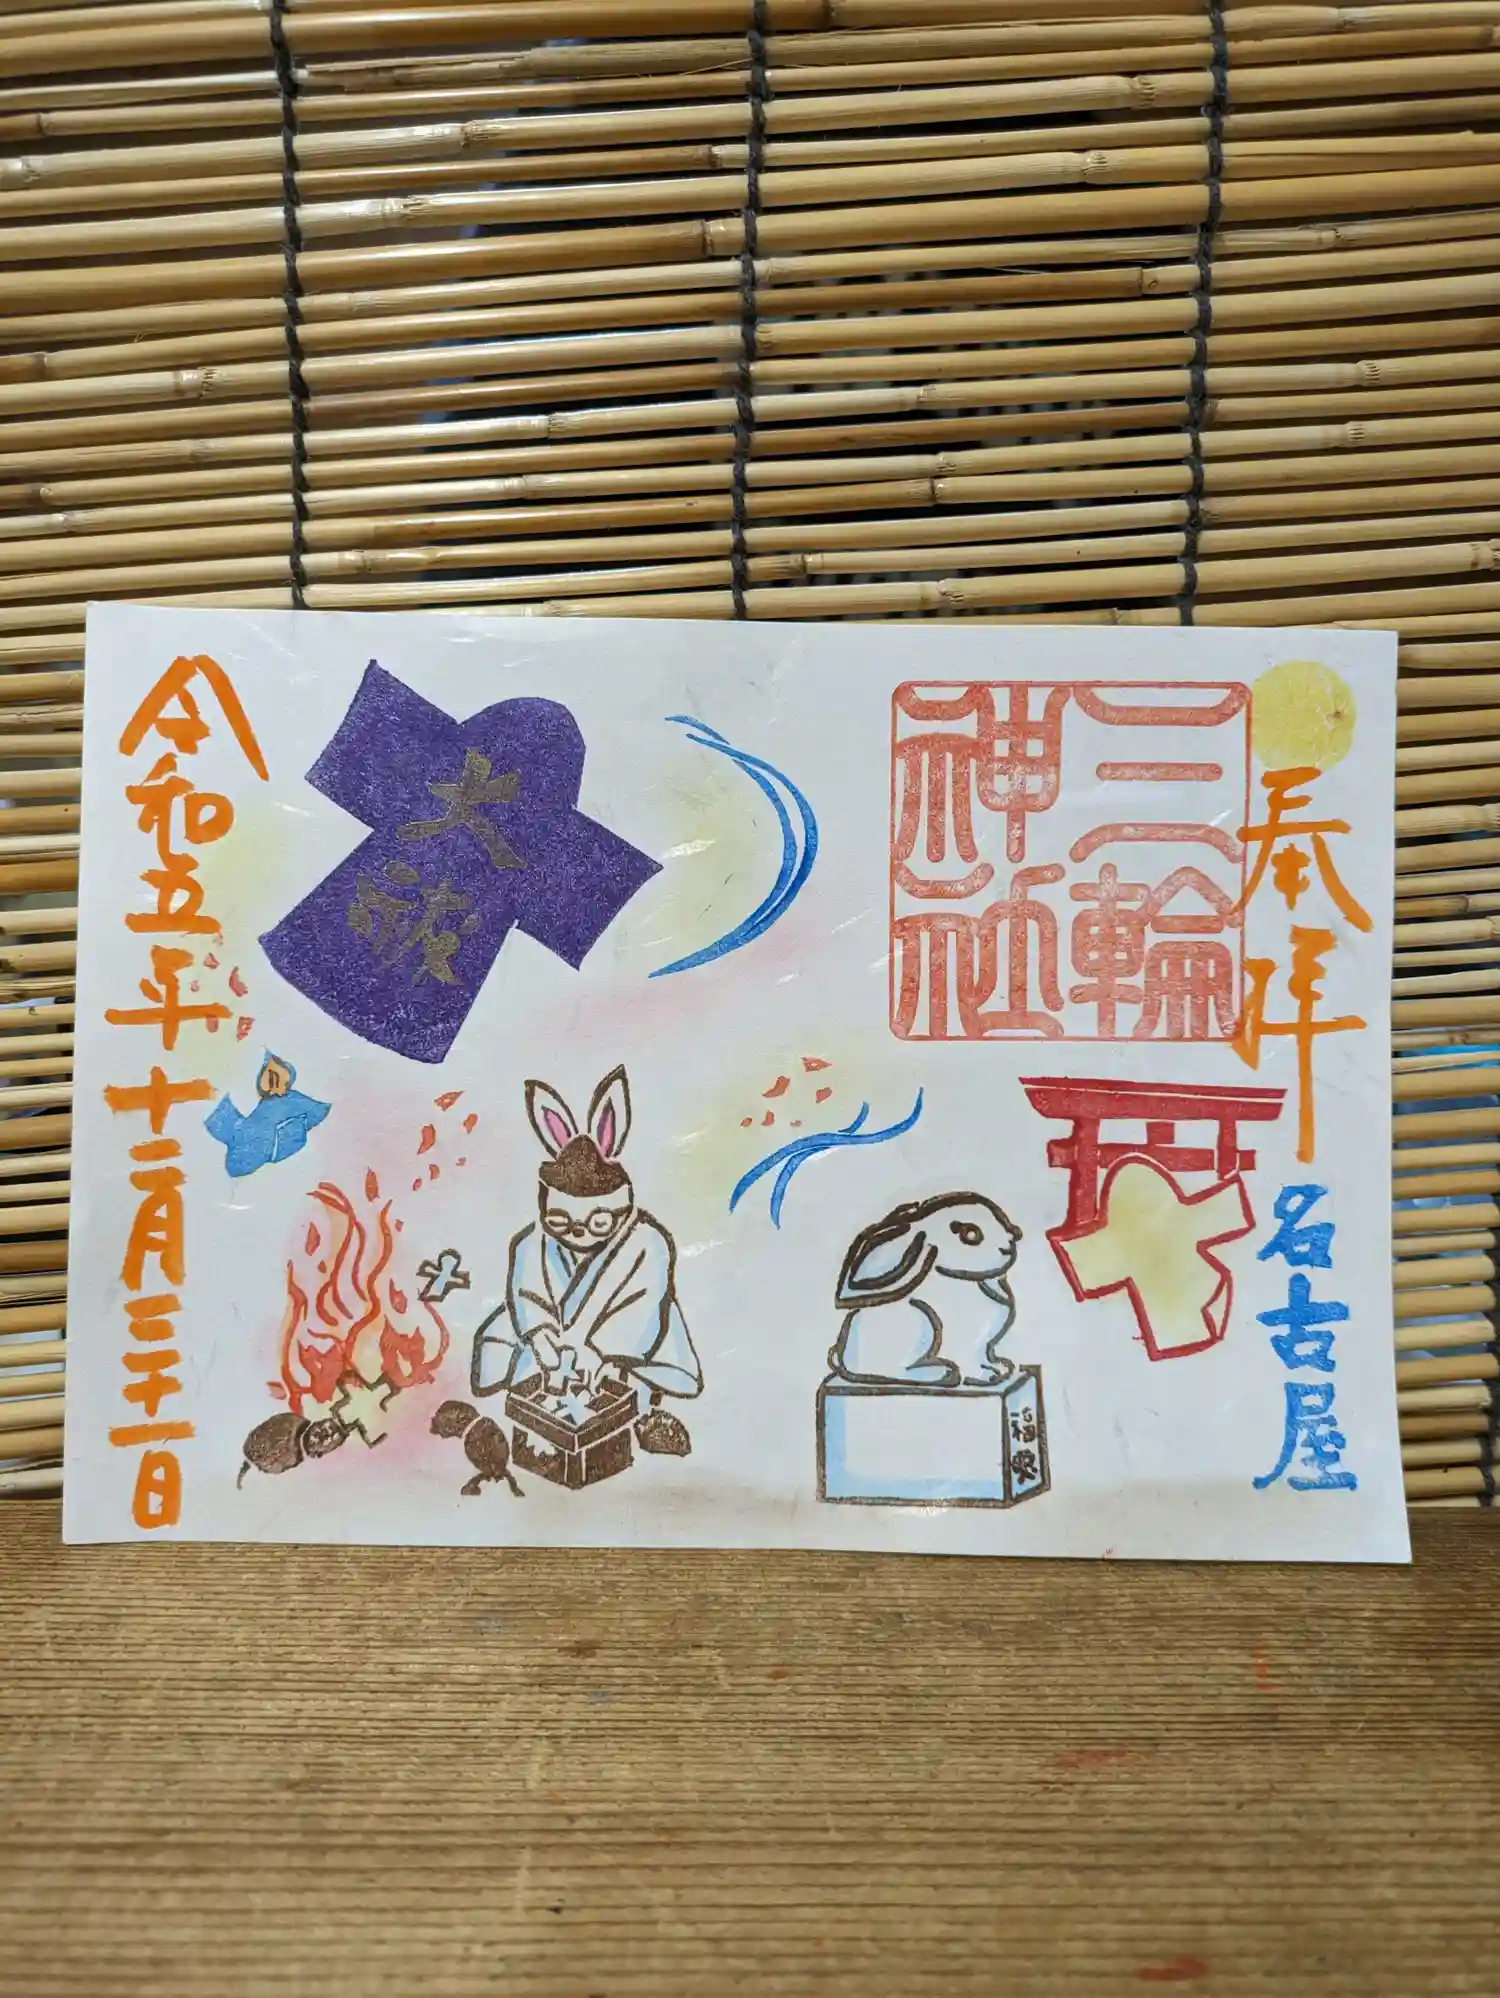 奉拝
三輪
神社
名古屋
福兎
大祓
令和五年十二月三十一日